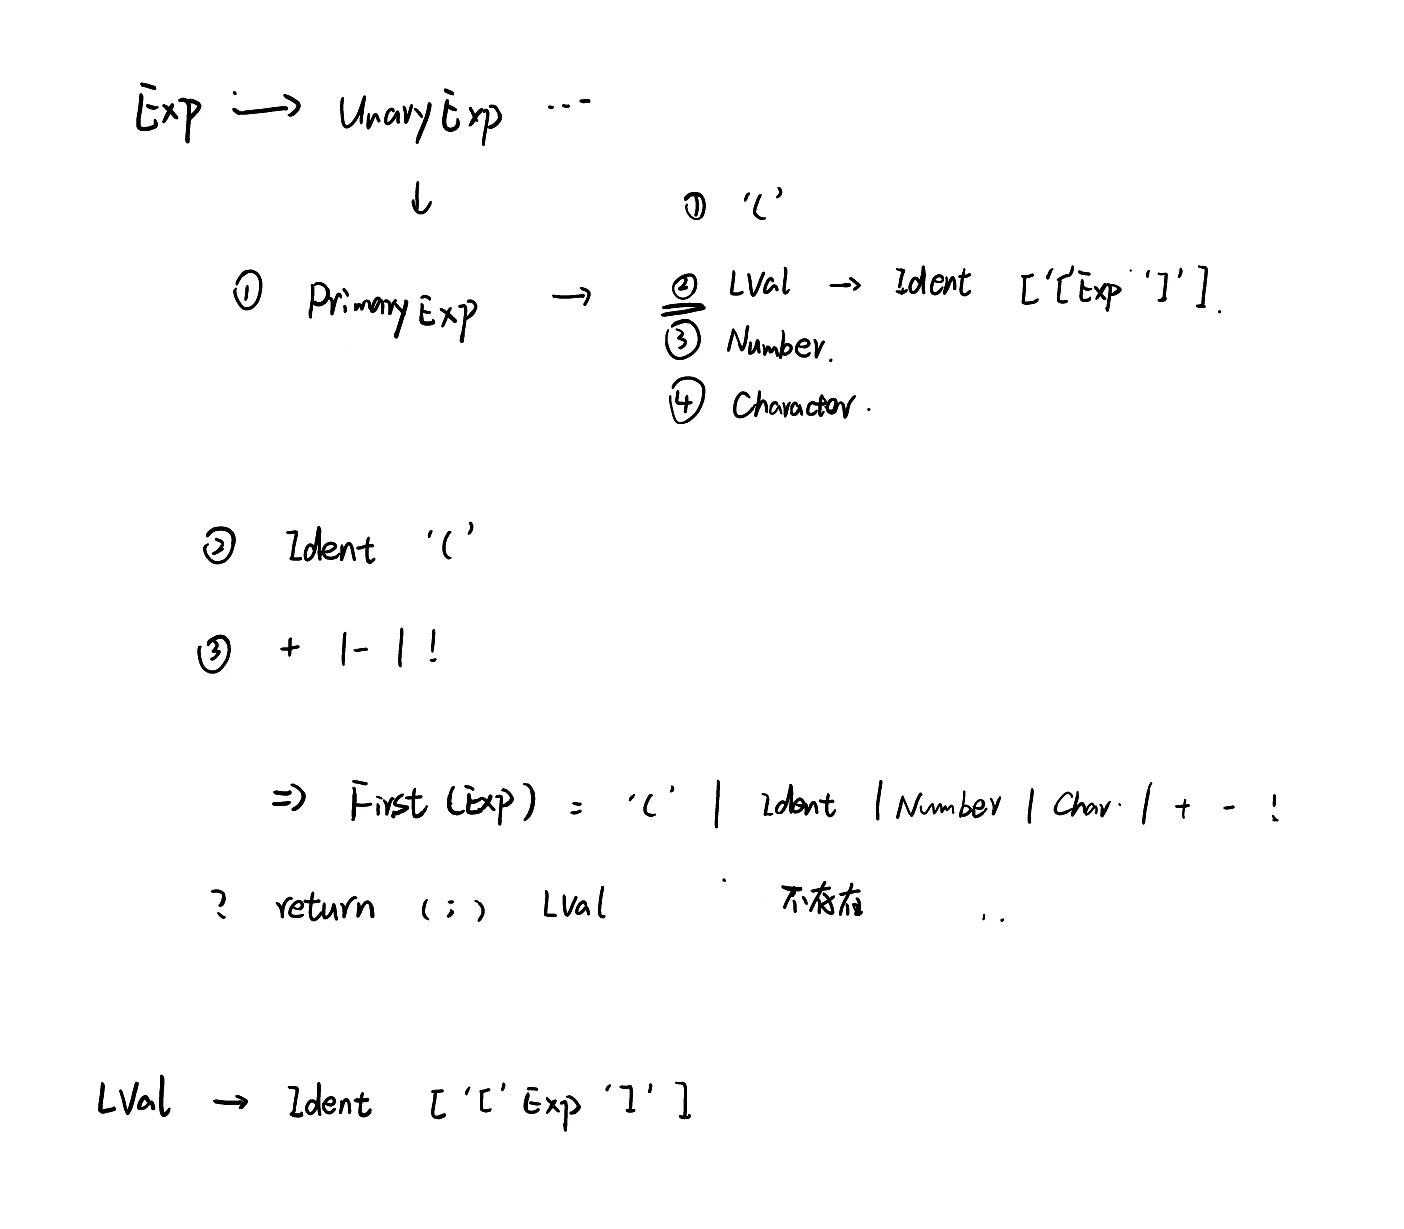 Exp → UnaryExp ...
↓
① '('
① PrimaryExp → ② LVal → Ident ['[' Exp ']'].
③ Number.
④ Character.
② Ident '('
③ + | - | !
=> First (Exp) = '(' | Ident | Number | Char. | + - !
? return (;) LVal 不存在
LVal → Ident ['[' Exp ']']